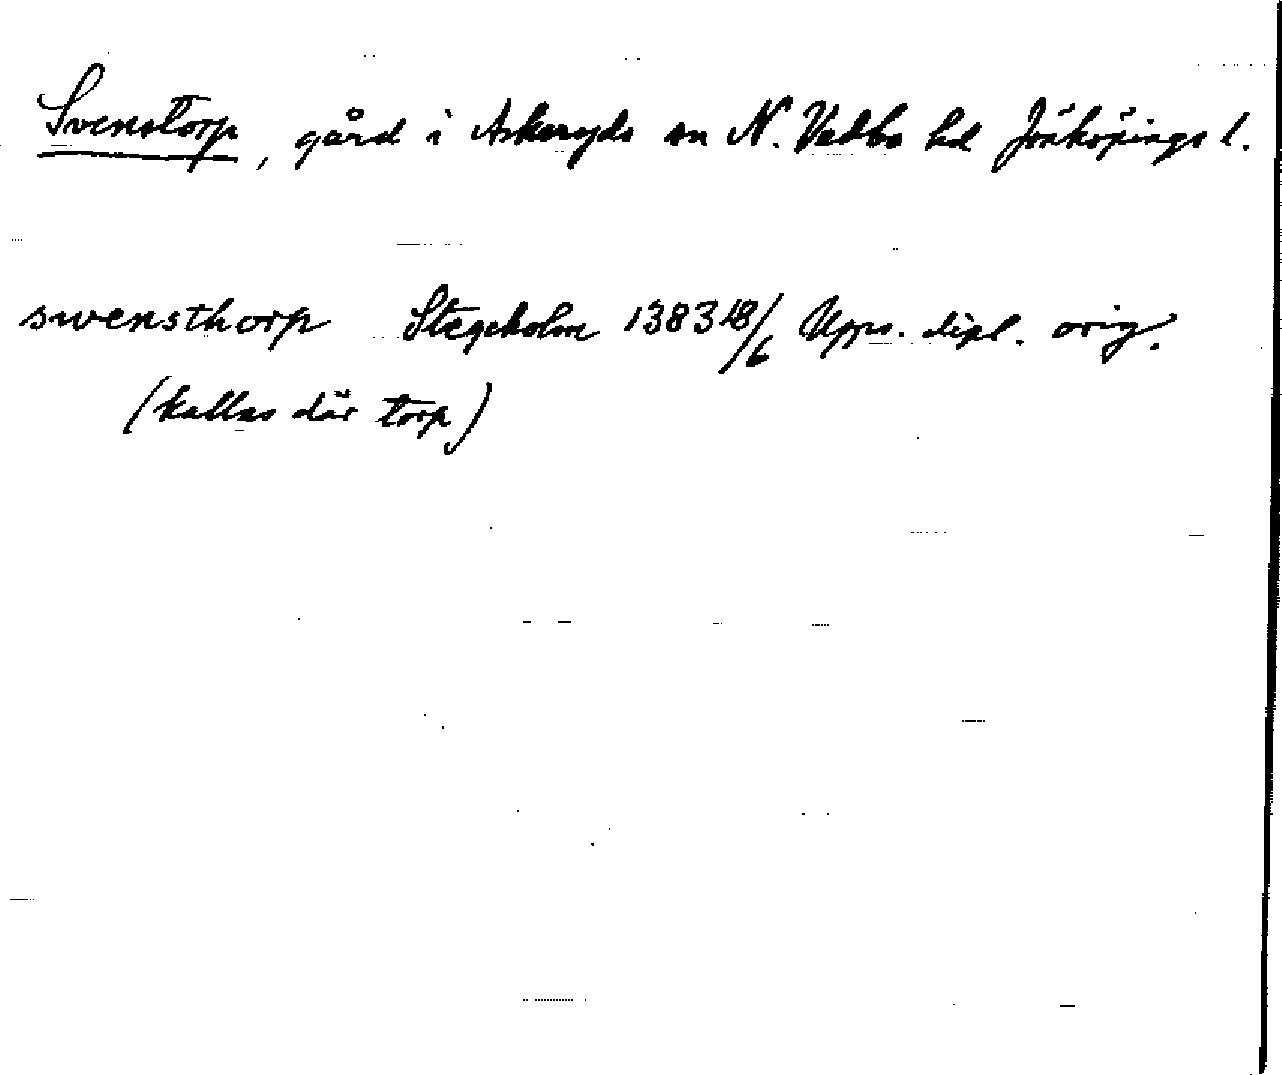 Svenstorp, gård i Askeryds sn N. Vedbo hd Jönköpings l.
swensthorp Stegeholm 1383 18/6 Upps. dipl. orig.
(kallas där torp)